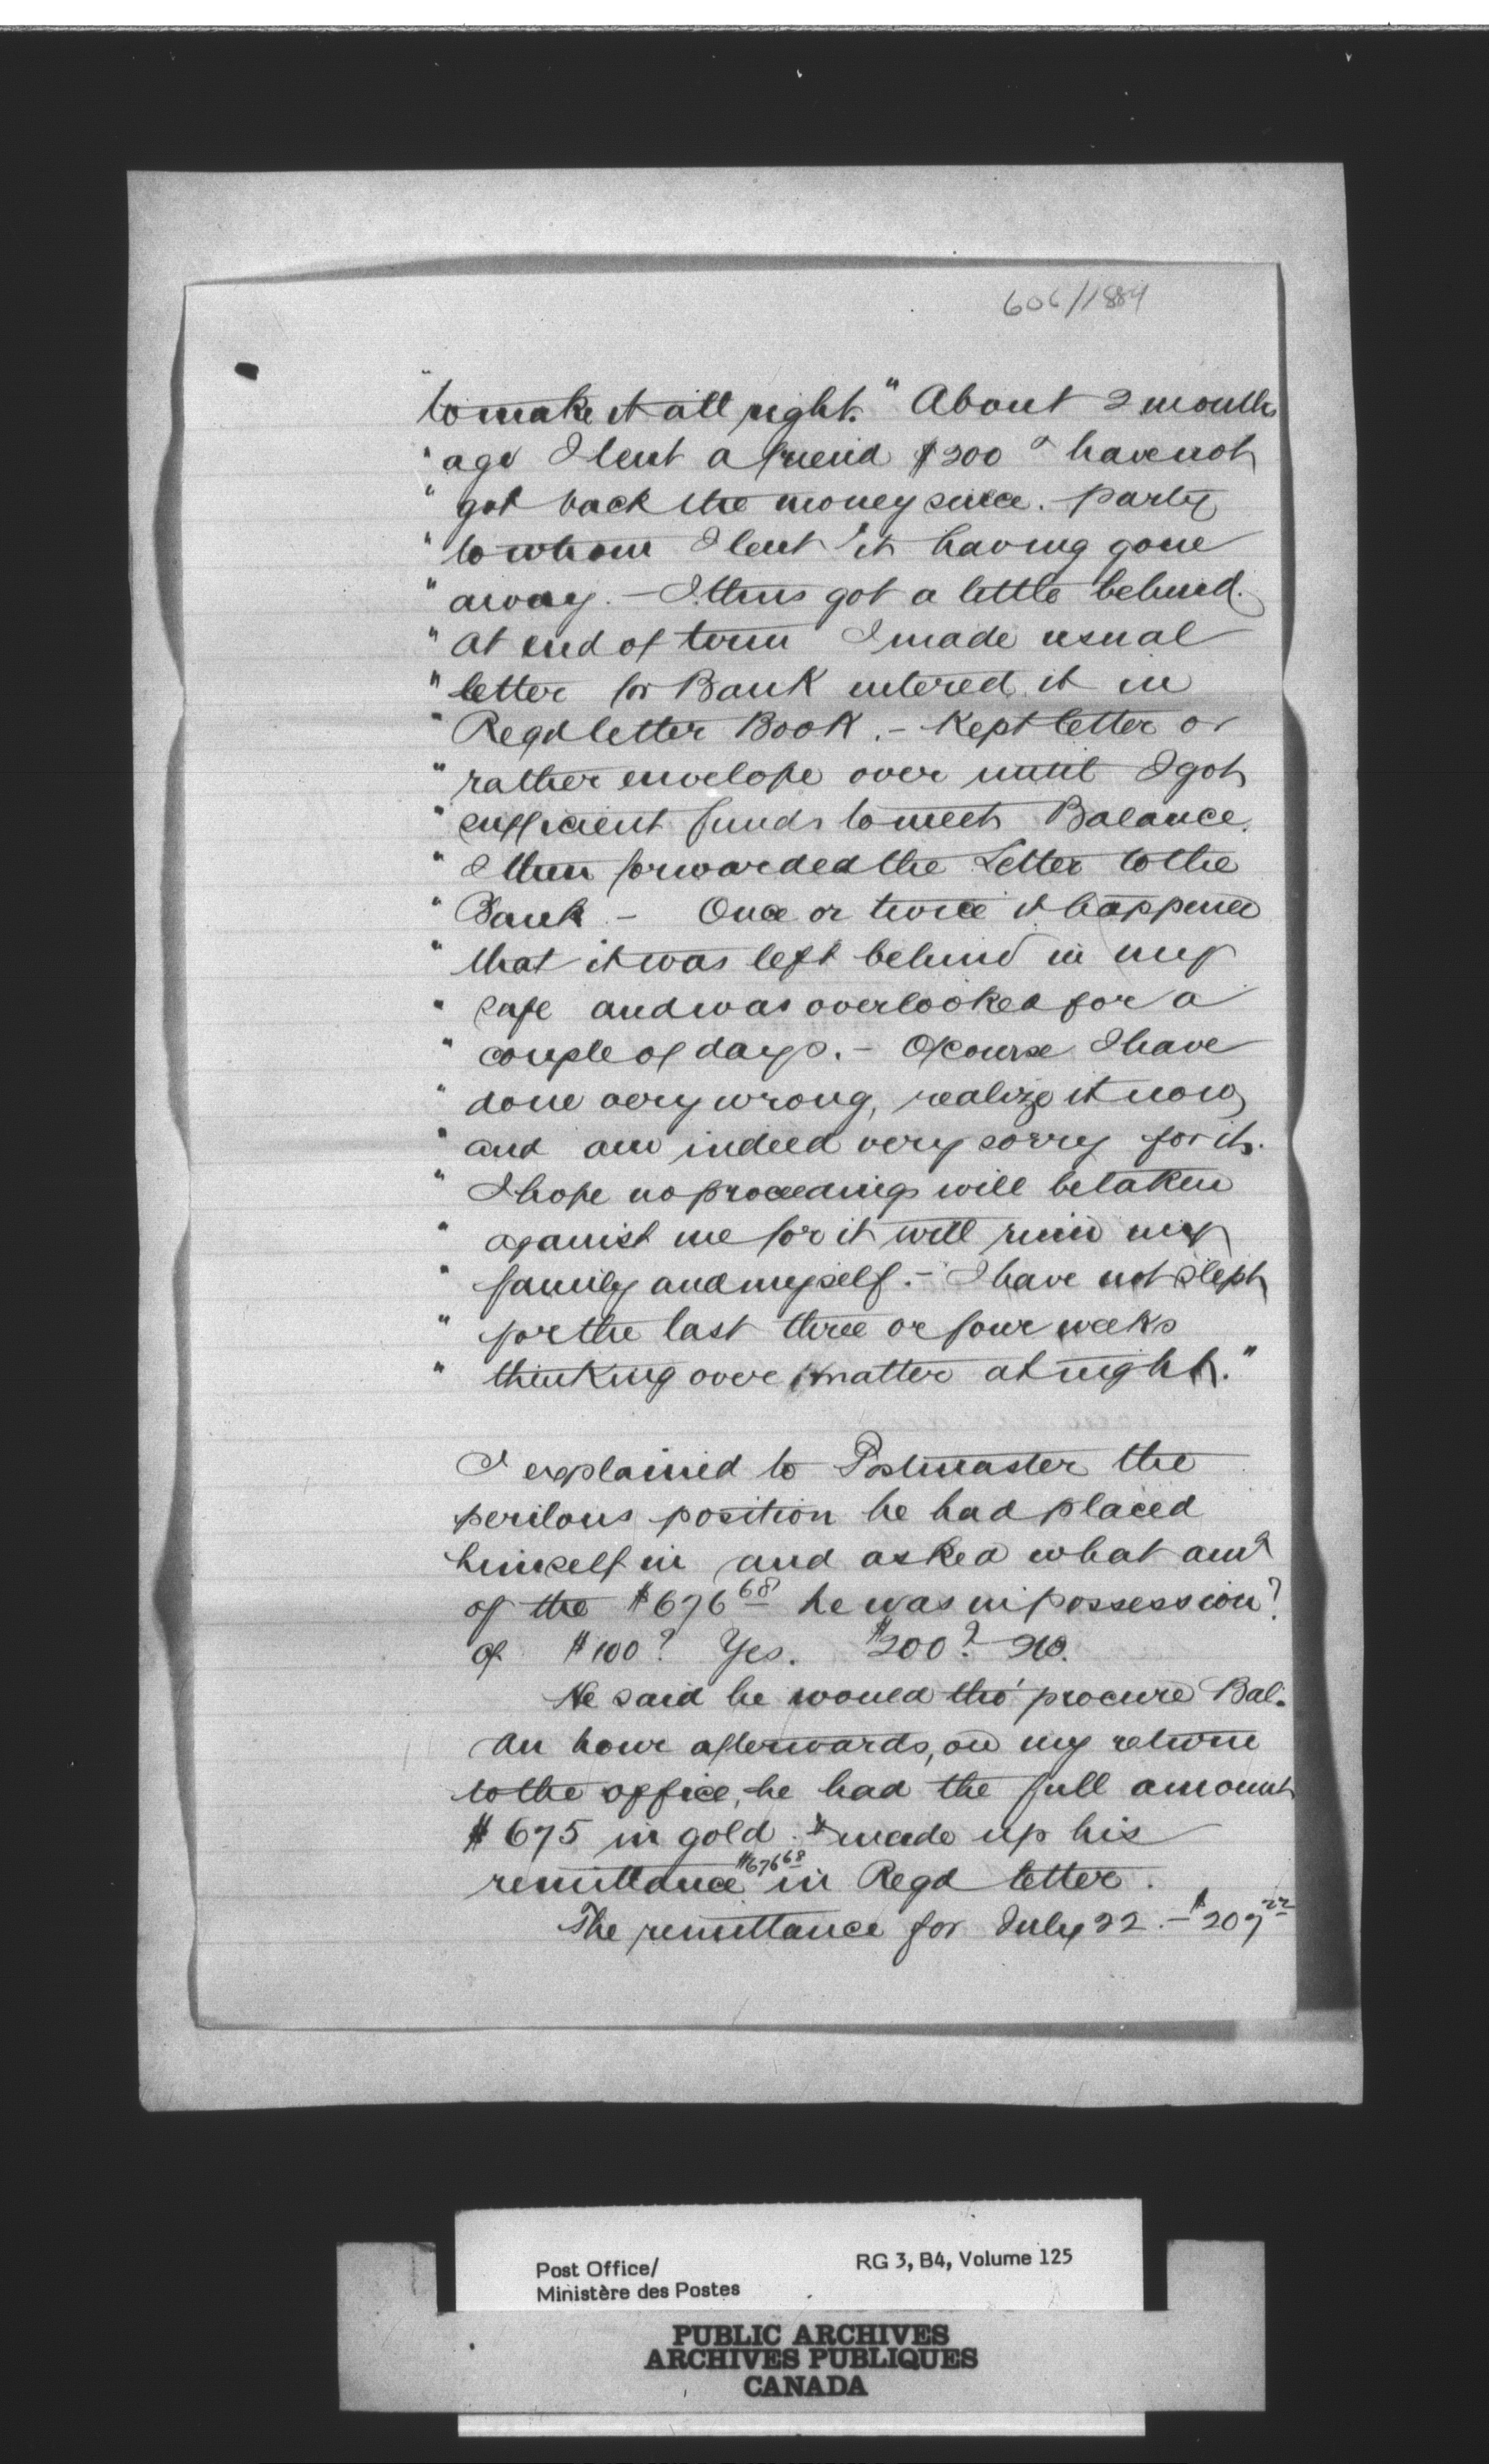 606/1884
"to make it all right." About 2 months
"ago I lent a friend $200 & have not
"got back the money since. party
"to whom I lent it having gone
"away. - I thus got a little behind.
"At end of term I made usual
"letter for Bank entered it in
"Regd letter Book. - Kept letter or
"rather envelope over until I got
"sufficient funds to meet Balance.
"I then forwarded the Letter to the
"Bank - Once or twice it happened
"that it was left behind in my
"safe and was overlooked for a
"couple of days. - Of course I have
"done very wrong, realize it now,
"and am indeed very sorry for it.
"I hope no proceedings will be taken
"against me for it will ruin my
"family and myself. - I have not slept
"for the last three or four weeks
"thinking over matter at night."
I explained to Postmaster the
perilous position he had placed
himself in and asked what amt
of the $676 68 he was in possession?
of $100? Yes. $200? No.
He said he would tho' procure Bal.
An hour afterwards, on my return
to the office, he had the full amount
$675 in gold. & made up his
remittance $676 68 in Regd letter.
The remittance for July 22. - $207 22
Post Office/
Ministère des Postes
RG 3, B4, Volume 125
PUBLIC ARCHIVES
ARCHIVES PUBLIQUES
CANADA